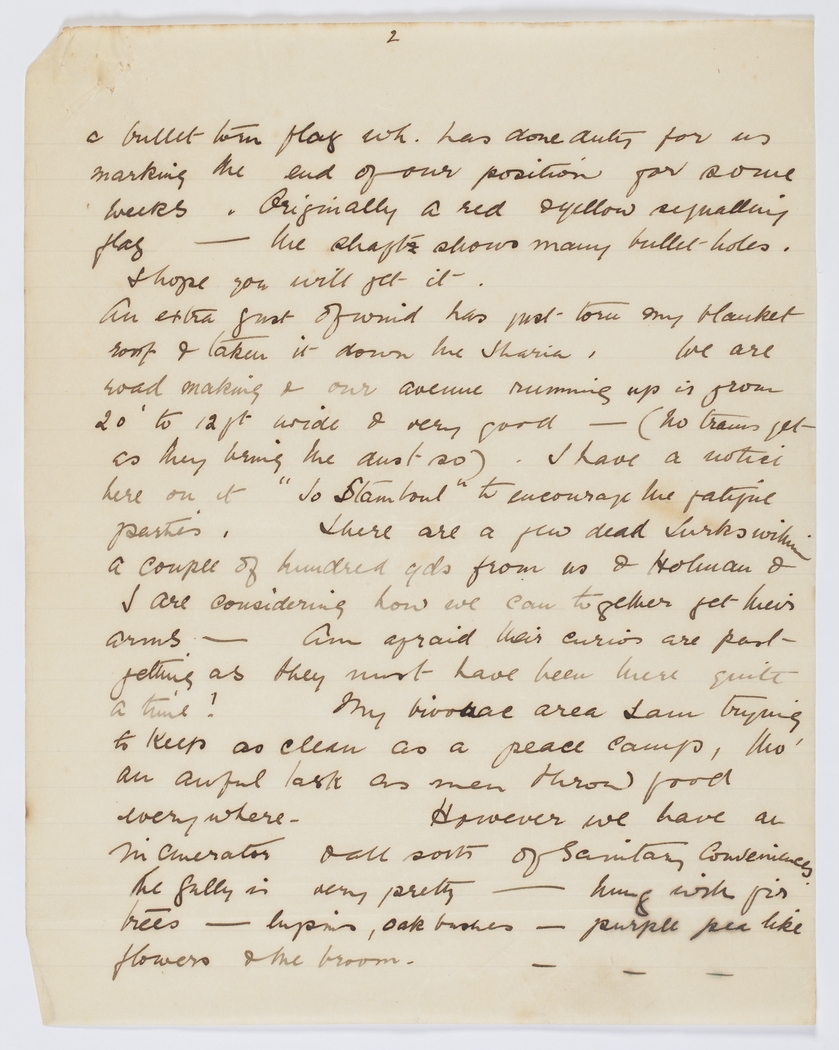 2
a bullet torn flag wh. has done duty for us
marking the end of our position for some
weeks. Originally a red & yellow signalling
flag — the shaft shows many bullet-holes.
I hope you will get it.
An extra gust of wind has just torn my blanket
roof & taken it down the Sharia. We are
road making & our avenue running up is from
20' to 12 ft wide & very good — (no trams yet
as they bring the dust so). I have a notice
here on it "To Stamboul" to encourage the fatigue
parties. There are a few dead Turks within
a couple of hundred yds from us & Holman &
I are considering how we can together get their
arms — Am afraid their curios are past
getting as they must have been there quite
a time! My bivouac area I am trying
to keep as clean as a peace camp, tho'
an awful task as men throw food
everywhere- However we have an
incinerator & all sorts of Sanitary Conveniences.
The gully is very pretty — hung with fir
trees — lupins, oak bushes — purple pea like
flowers & the broom. — — —